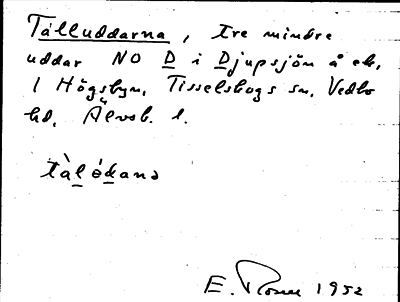 Tålluddarna, tre mindre
uddar NO D i Djupsjön å ek.
1 Högsbyn, Tisselskogs sn, Vedbo
hd, Älvsb. l.
tàlódana
E. Rosen 1952